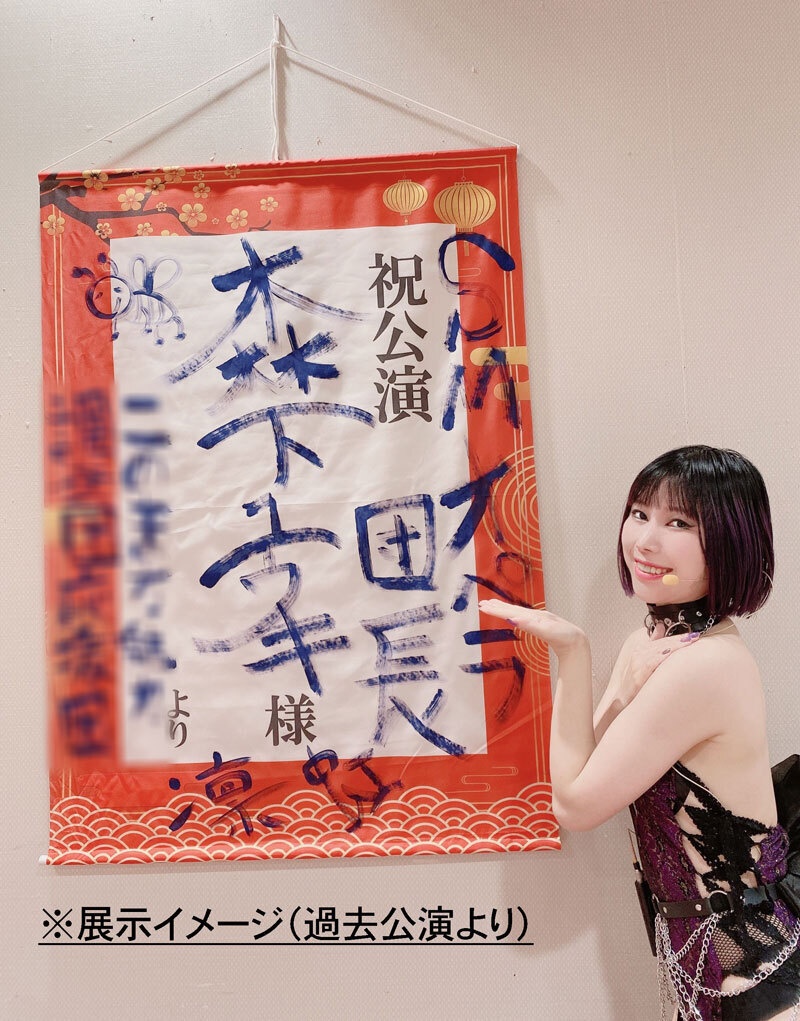 SMオペラ
祝公演
団長
森下幸
様
凛虹
より
※展示イメージ（過去公演より）